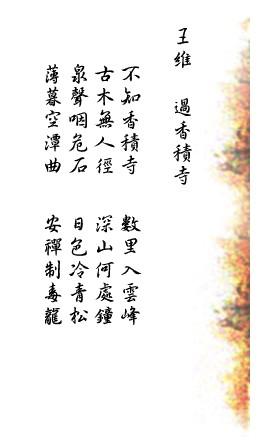 王維　過香積寺
不知香積寺　數里入雲峰
古木無人徑　深山何處鐘
泉聲咽危石　日色冷青松
薄暮空潭曲　安禪制毒龍